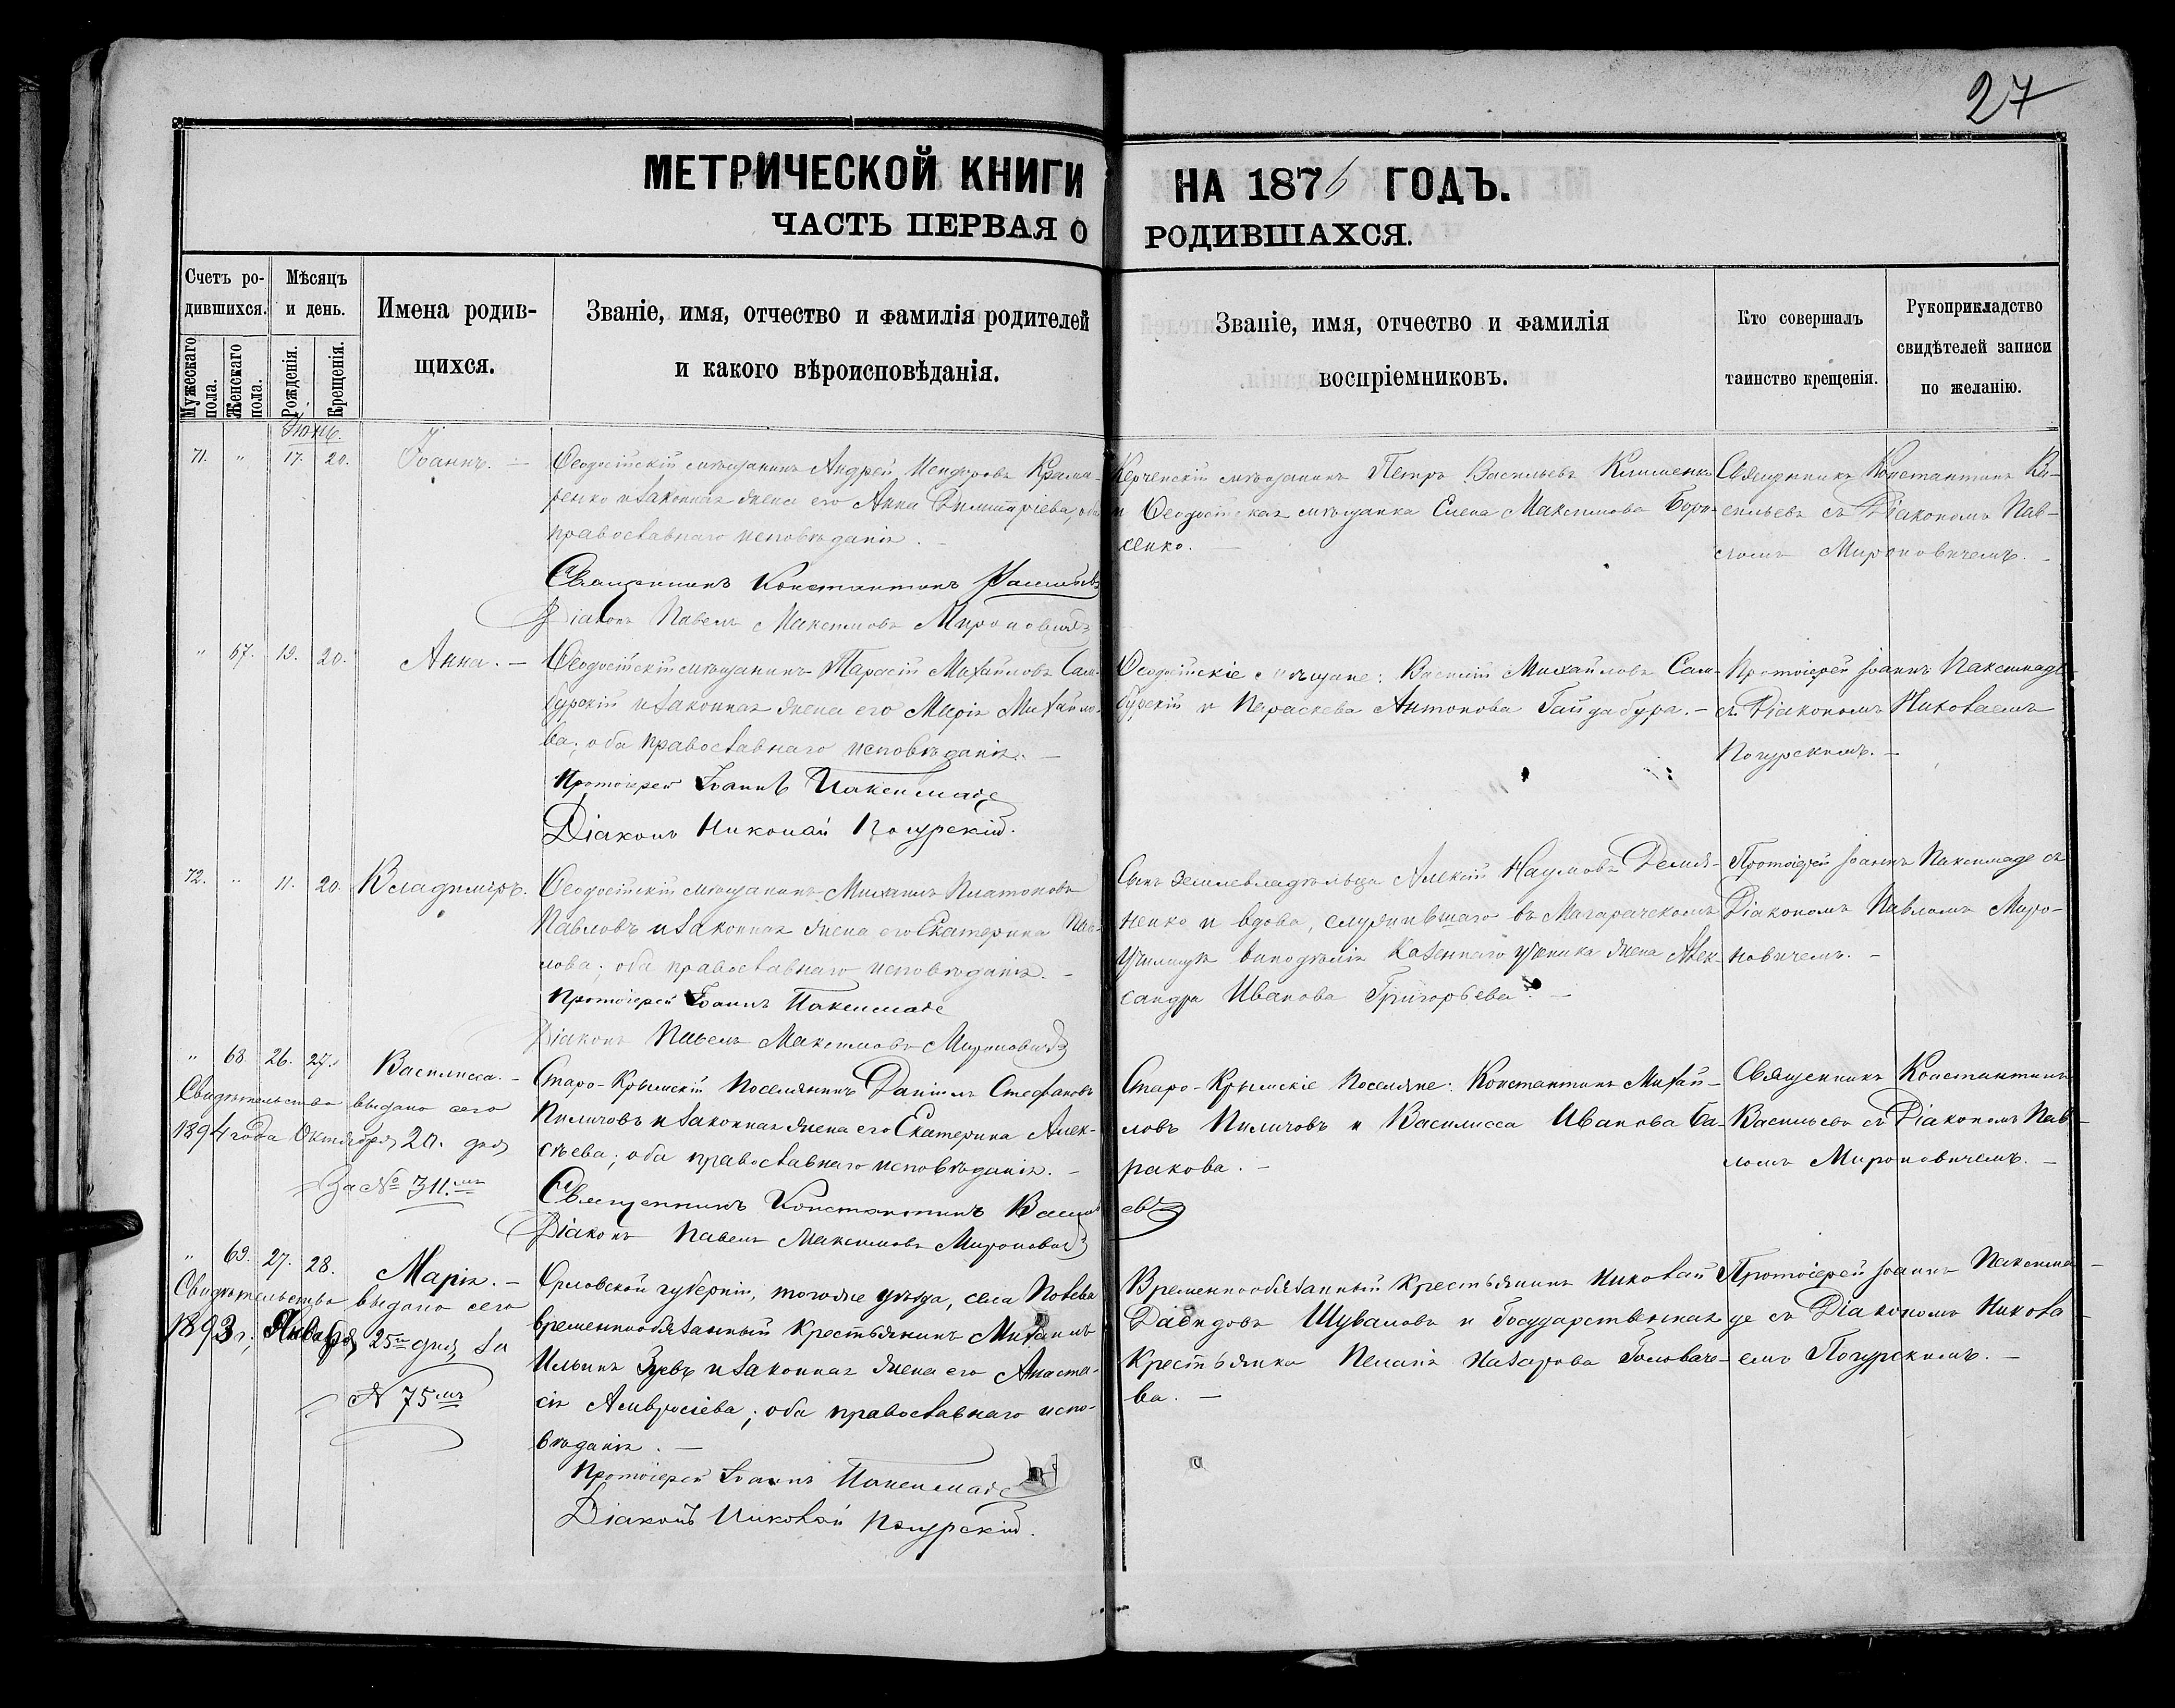 27
МЕТРИЧЕСКОЙ КНИГИ НА 1876 ГОДЪ.
ЧАСТЬ ПЕРВАЯ О РОДИВШАХСЯ.
Счетъ ро-
дившихся.
Мужескаго пола.
Женскаго пола.
Мѣсяцъ
и день.
Рожденія.
Крещенія.
Имена родив-
щихся.
Званіе, имя, отчество и фамилія родителей
и какого вѣроисповѣданія.
Званіе, имя, отчество и фамилія
воспріемниковъ.
Кто совершалъ
таинство крещенія.
Рукоприкладство
свидѣтелей записи
по желанію.
Іюнь.
71. " 17. 20. Іоаннъ. —
Ѳеодосійскій мѣщанинъ Андрей
ренко и законная жена его Анна Димитріева, оба
православнаго исповѣданія. —
Священникъ Константинъ Васильевъ
Діаконъ Павелъ Максимовъ Мироновичъ
Керченскій мѣщанинъ Петръ Васильевъ Клименко
и Ѳеодосійская мѣщанка Елена Максимова Бори-
сенко. —
Священникъ Константинъ Ва-
сильевъ съ Діакономъ Пав-
ломъ Мироновичемъ. —
" 67. 19. 20. Анна. —
Ѳеодосійскій мѣщанинъ Тарасій Михайловъ Сам-
бурскій и законная жена его Марія Михайло-
ва; оба православнаго исповѣданія. —
Протоіерей Іоаннъ Паксимаде
Діаконъ Николай Погурскій.
Ѳеодосійскіе мѣщане: Василій Михайловъ Сам-
бурскій и Параскева Антонова Гайдабура. —
Протоіерей Іоаннъ Паксимаде
съ Діакономъ Николаемъ
Погурскимъ. —
72. " 11. 20. Владиміръ.
Ѳеодосійскій мѣщанинъ Михаилъ Платоновъ
Павловъ и законная жена его Екатерина Пав-
лова; оба православнаго исповѣданія. —
Протоіерей Іоаннъ Паксимаде
Діаконъ Павелъ Максимовъ Мироновичъ
Сынъ землевладѣльца Алексій Наумовъ Демья-
ненко и вдова, служившаго въ Магарачскомъ
Училищѣ винодѣлія Казеннаго ученика жена Алек-
сандра Иванова Григорьева. —
Протоіерей Іоаннъ Паксимаде съ
Діакономъ Павломъ Миро-
новичемъ. —
" 68 26. 27. Василисса. —
Свидѣтельство выдано сего
1894 года Октября 20. дня
За № 311.мъ
Старо-Крымскій Поселянинъ Даніилъ Стефановъ
Пиличовъ и законная жена его Екатерина Алек-
сѣева; оба православнаго исповѣданія. —
Священникъ Константинъ Василь
евъ
Діаконъ Павелъ Максимовъ Мироновичъ
Старо-Крымскіе Поселяне: Константинъ Михай-
ловъ Пиличовъ и Василисса Иванова Ба-
ракова. —
Священникъ Константинъ
Васильевъ съ Діакономъ Пав-
ломъ Мироновичемъ. —
" 69. 27. 28. Марія. —
Свидѣтельство выдано сего
1893 г., Января, 25го дня, за
№ 75мъ
Орловской губерніи, тогоже уѣзда, села
временнообязанный крестьянинъ Михаилъ
Ильинъ Зуевъ и законная жена его Анаста-
сія Амвросіева; оба православнаго испо-
вѣданія. —
Протоіерей Іоаннъ Паксимаде
Діаконъ Николай Погурскій.
Временнообязанный крестьянинъ Николай
Давидовъ Шуваловъ и Государственная
крестьянка Пелагія Назарова Головаче-
ва. —
Протоіерей Іоаннъ Паксима-
де съ Діакономъ Никола-
емъ Погурскимъ. —